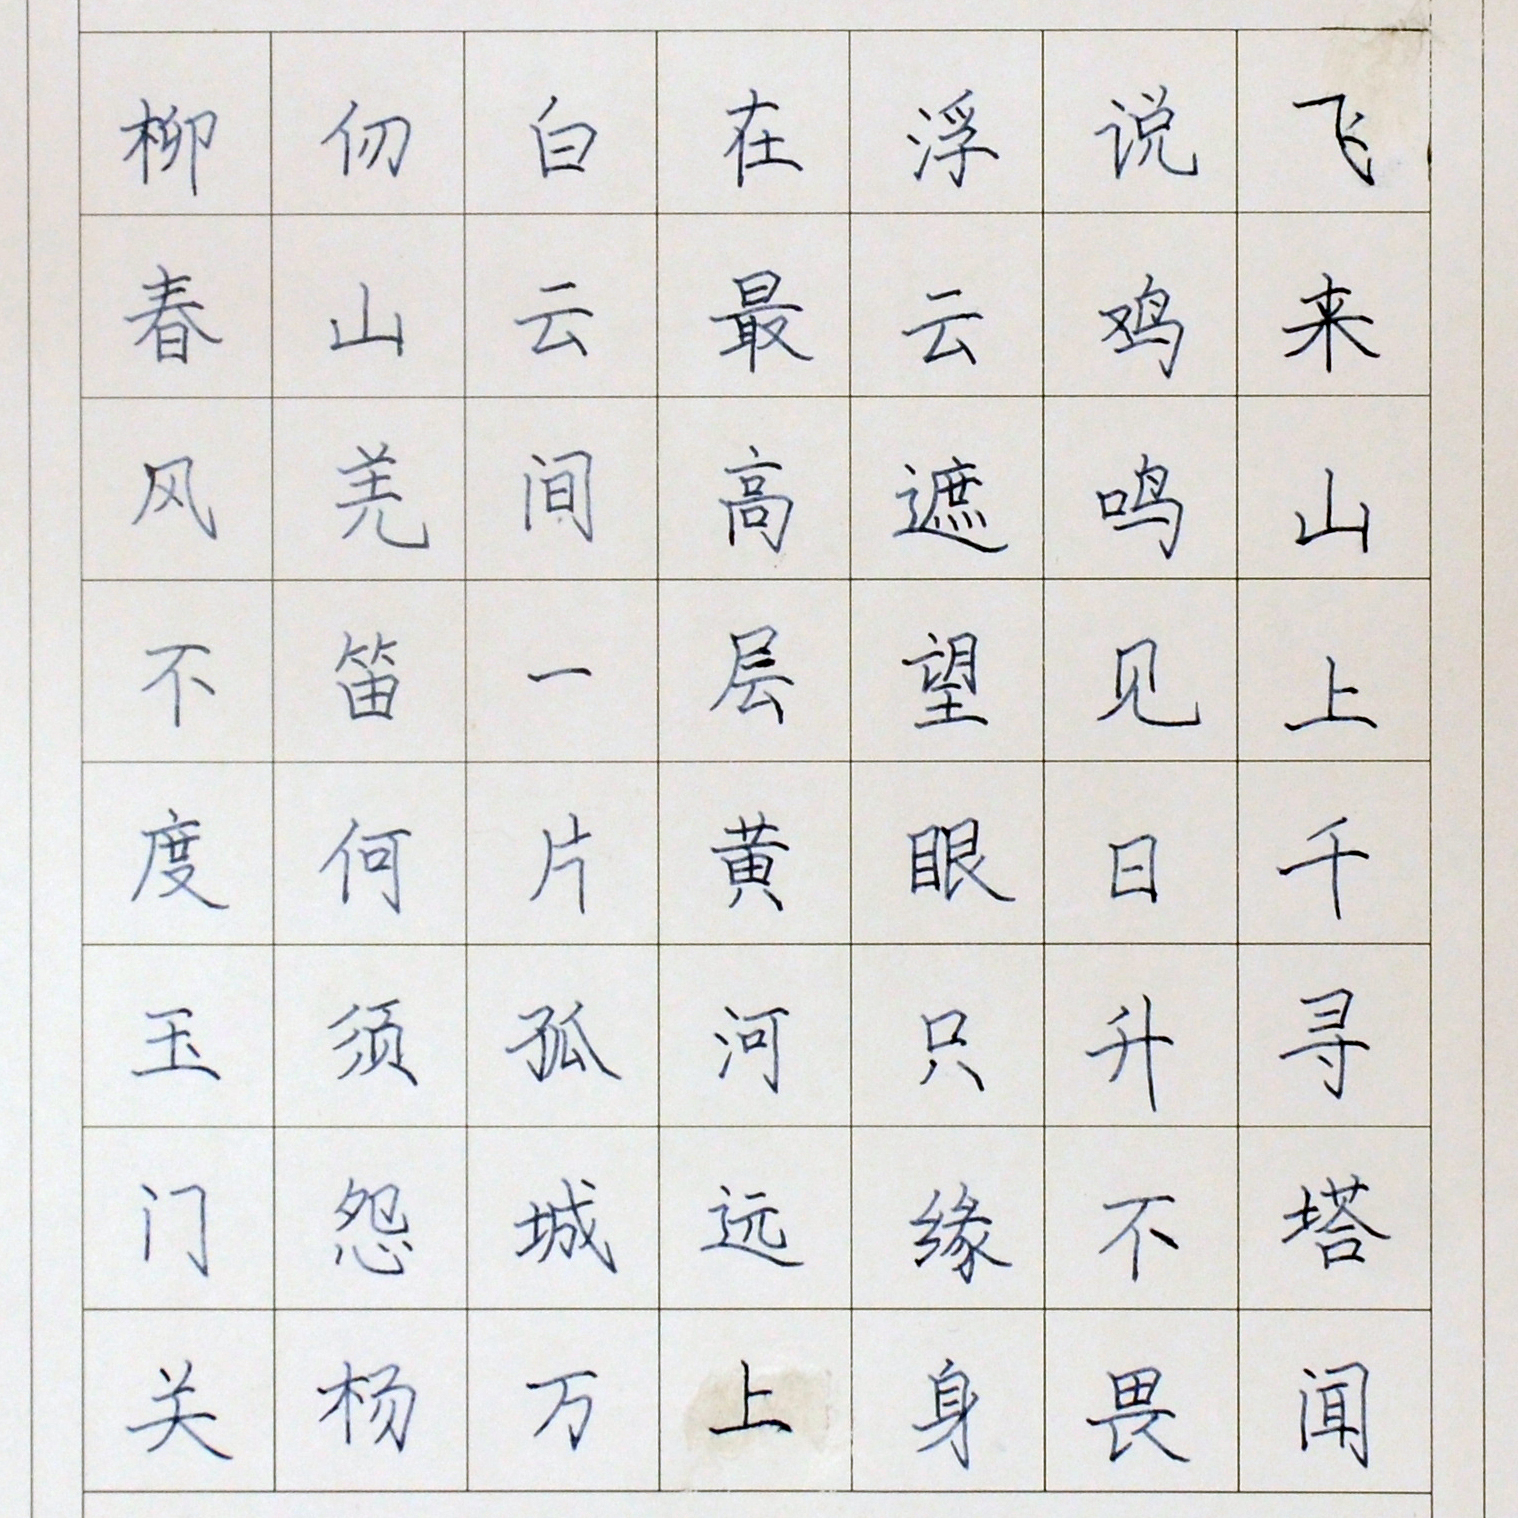 飞来山上千寻塔闻
说鸡鸣见日升不畏
浮云遮望眼只缘身
在最高层黄河远上
白云间一片孤城万
仞山羌笛何须怨杨
柳春风不度玉门关